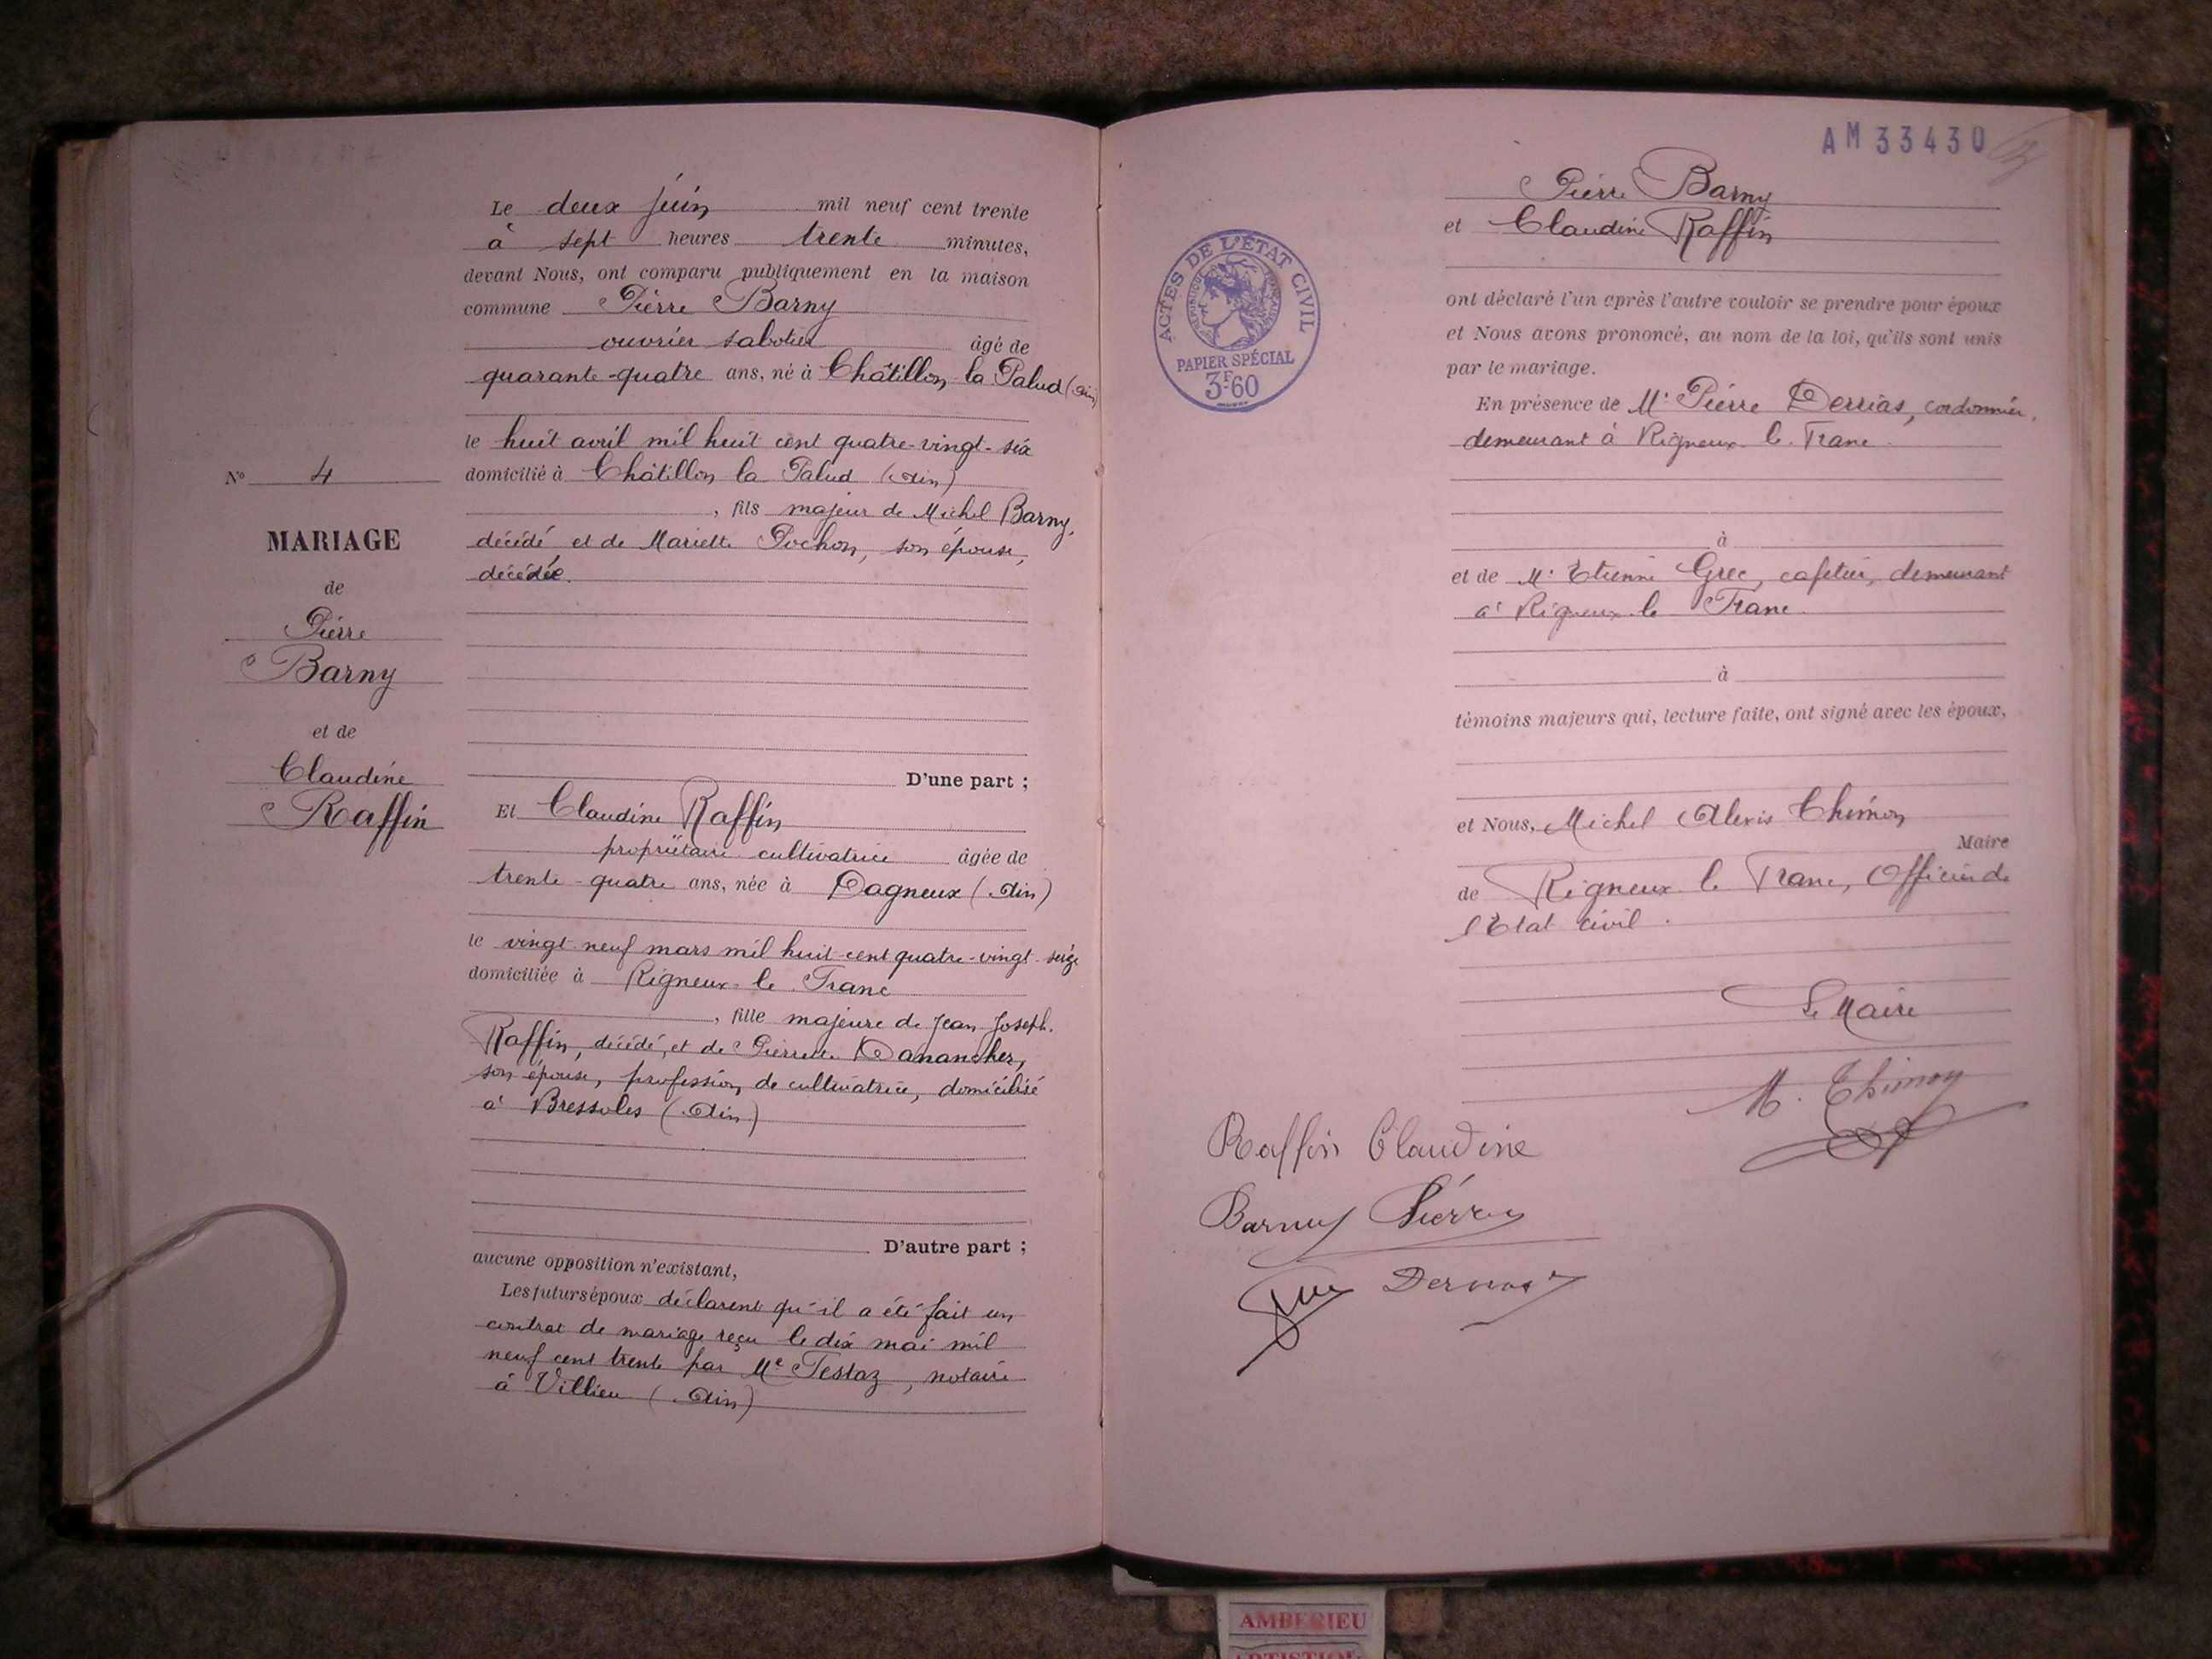 N° 4
MARIAGE
de
Pierre
Barny
et de
Claudine
Raffin
Le deux juin mil neuf cent trente
à sept heures trente minutes,
devant Nous, ont comparu publiquement en la maison
commune Pierre Barny
ouvrier sabotier âgé de
quarante-quatre ans, né à Châtillon la Palud (Ain)
le huit avril mil huit cent quatre-vingt-six
domicilié à Châtillon la Palud (Ain)
, fils majeur de Michel Barny,
décédé et de Mariette Pochon, son épouse,
décédée.
D'une part ;
Et Claudine Raffin
propriétaire cultivatrice âgée de
trente-quatre ans, née à Dagneux (Ain)
le vingt-neuf mars mil huit cent quatre-vingt-seize
domiciliée à Rigneux-le-Franc
, fille majeure de Jean-Joseph
Raffin, décédé, et de Pierrette Danancher,
son épouse, profession de cultivatrice, domicilié
à Bressolles (Ain)
D'autre part ;
aucune opposition n'existant,
Les futurs époux déclarent qu'il a été fait un
contrat de mariage reçu le dix mai mil
neuf cent trente par Me Testaz, notaire
à Villieu (Ain)
AM 33430
ACTES DE L'ÉTAT CIVIL
RÉPUBLIQUE FRANÇAISE
PAPIER SPÉCIAL
3F-60
Pierre Barny
et Claudine Raffin
ont déclaré l'un après l'autre vouloir se prendre pour époux
et Nous avons prononcé, au nom de la loi, qu'ils sont unis
par le mariage.
En présence de Mr Pierre cordonnier,
demeurant à Rigneux-le-Franc
à
et de Mr Etienne Grec, cafetier, demeurant
à Rigneux-le-Franc.
à
témoins majeurs qui, lecture faite, ont signé avec les époux,
et Nous, Michel Alexis Thimon
Maire
de Rigneux-le-Franc, Officier de
l'Etat civil.
Le Maire
M. Thimon
Raffin Claudine
Barny Pierre
AMBERIEU